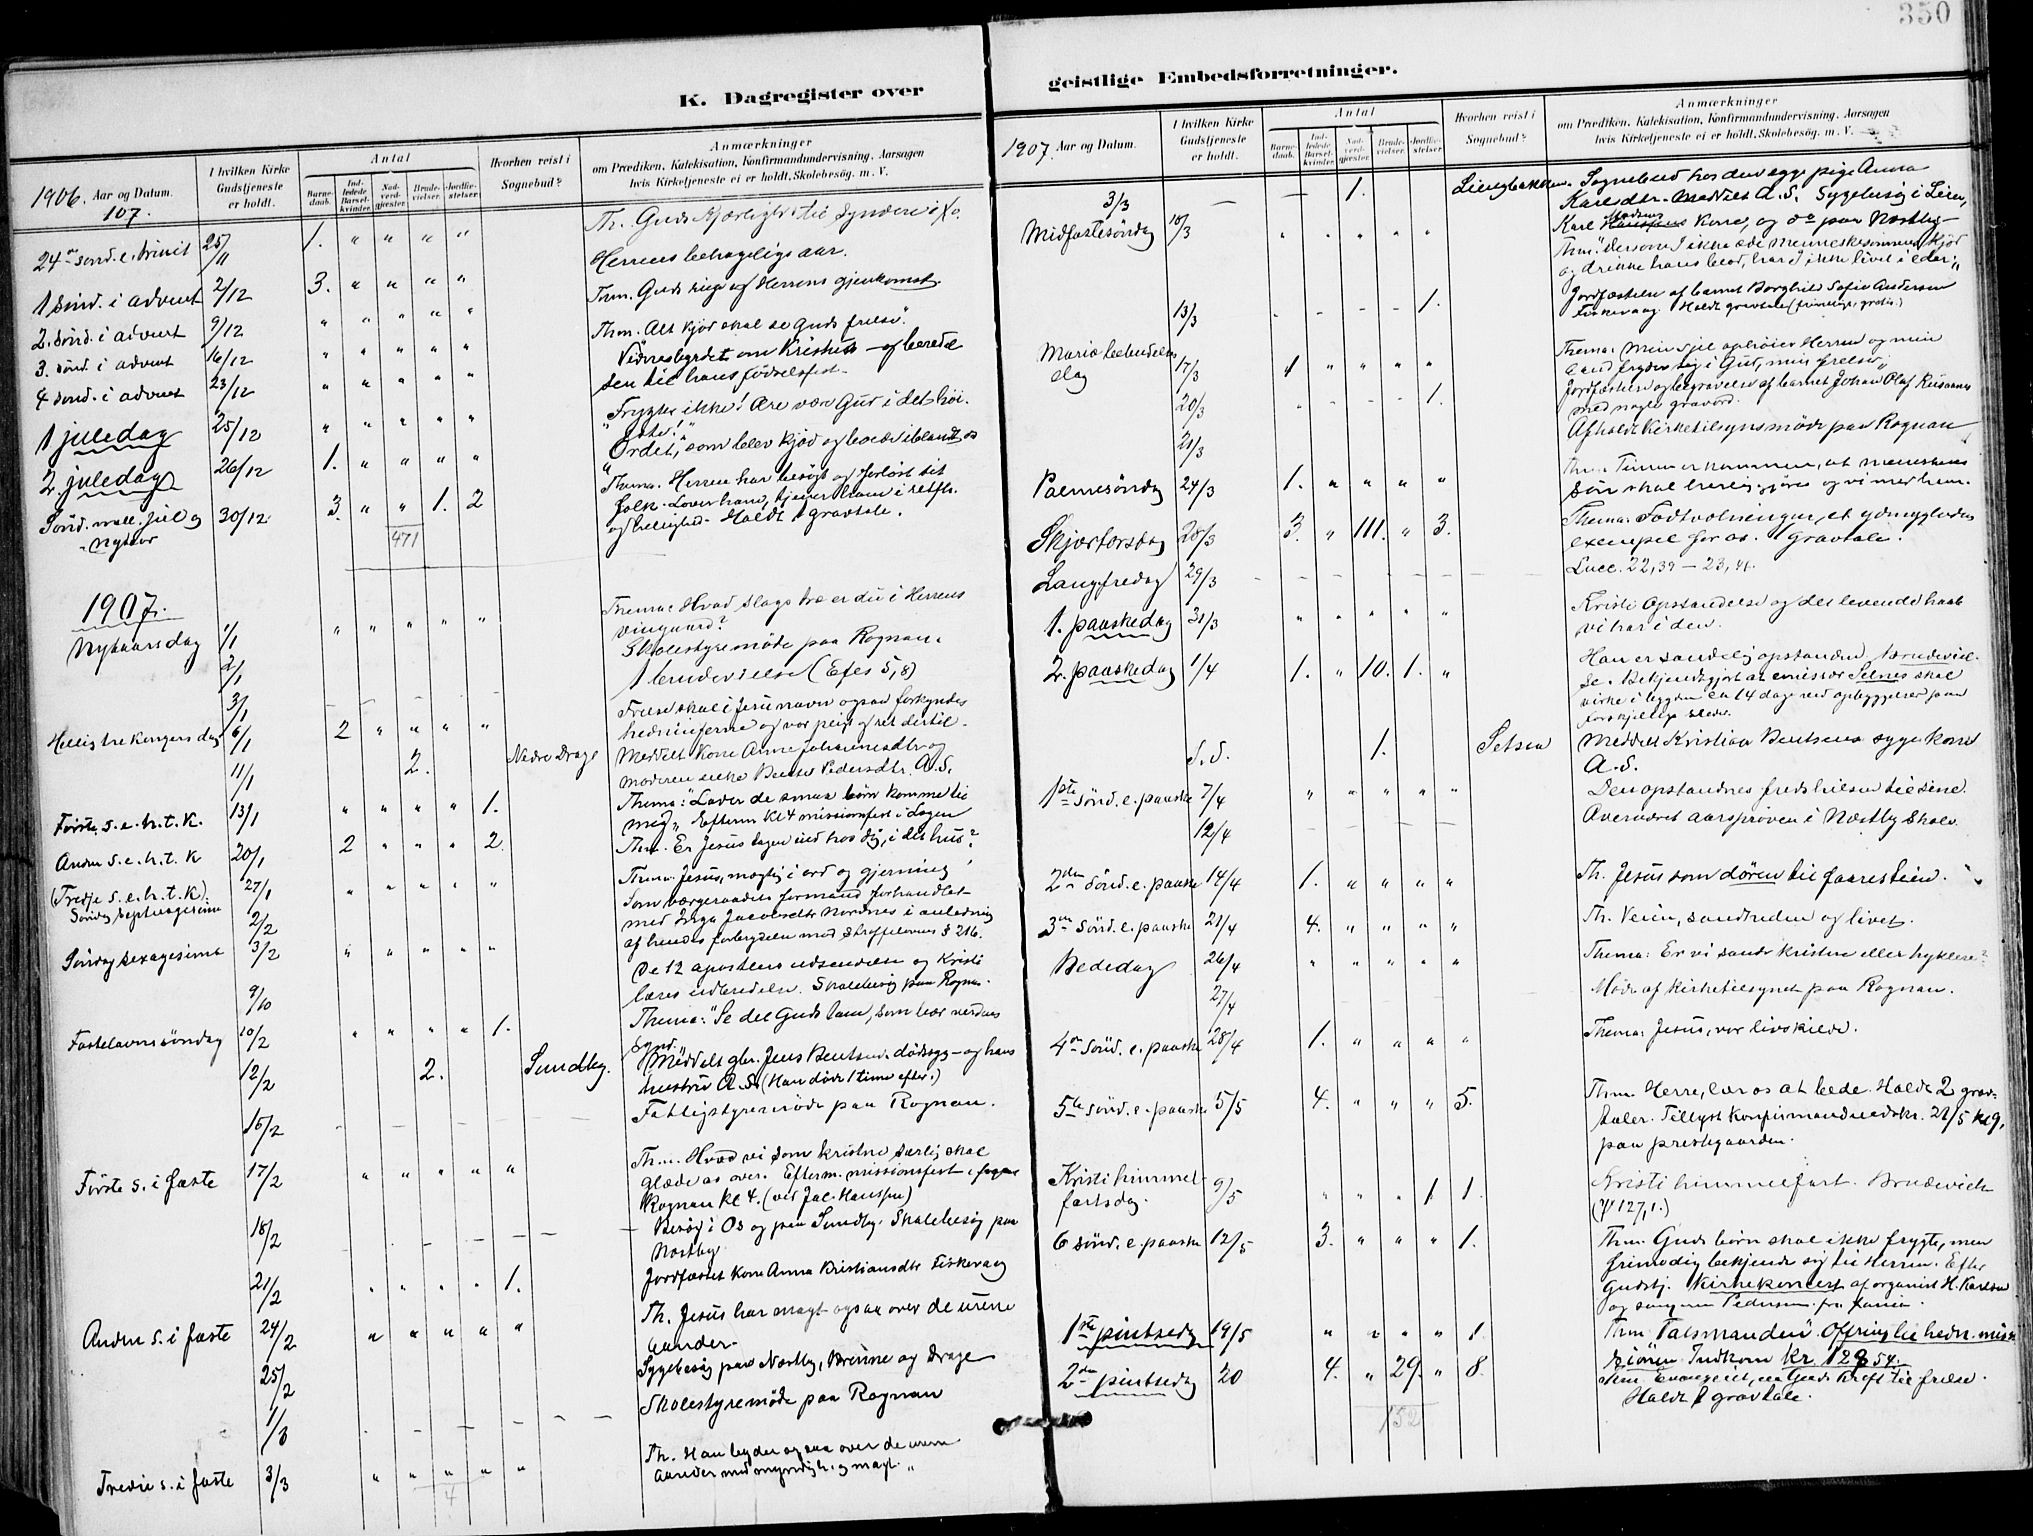 350
K. Dagregister over
geistlige Embedsforretninger.
1906. Aar og Datum.
107.
I hvilken Kirke
Gudstjeneste
er holdt.
Antal
Barne-
daab.
Ind-
ledede
Barsel-
kvinder.
Nad-
verd-
gjester.
Brude-
vielser.
Jordfæ-
stelser.
Hvorhen reist i
Sognebud?
Anmærkninger
om Prædiken, Katekisation, Konfirmandundervisning, Aarsagen
hvis Kirketjeneste ei er holdt, Skolebesøg. m. V.
24de sønd. e. trinit 25/11 1. " " " " Th. Guds kjærlighet til syndere i Xo.
Herrens behagelige aar.
1 sønd. i advent 2/12 3. " " " " Thm. Guds rige og Herrens gjenkomst.
2. sønd. i advent 9/12 " " " " " Thm. Alt kjød skal se Guds frelse".
3. sønd. i advent 16/12 " " " " " Vidnesbyrdet om Kristus og beredel
4 sønd. i advent 23/12 " " " " " sen til hans fødselsfest.
1 juledag 25/12 " " " " " "Frygter ikke! Ære være Gud i det høi-
este!"
2. juledag 26/12 1. " " " " Ordet, som blev kjød og boede iblandt os
Sønd. mell. jul og 30/12 3. " " 1. 2 Thema. Herren har besøgt og forløst sit
nytaar folk. Lover ham, tjener ham i retfh.
og hellighed. Holdt 1 gravtale.
471
1907.
Nytaarsdag 1/1 " " " " " Thema: Hvad slags træ er du i Herrens
vingaard?
2/1 Skolestyremøde paa Rognan.
3/1 1 brudevielse (Efes 5,8)
Hellig tre kongers dag 6/1 2 " " " " Frelse skal i Jesu navn ogsaa forkyndes
hedningerne og vor pligt og ret dertil.
11/1 2. Nedre Drage Meddelt Kone Anne Johannesdtr og
moderen enke Berte Pedersdtr. A. S.
Første s. e. h. t. k. 13/1 " " " " 1. Thema: "Lader de smaa børn komme til
mig". Efterm kl 4 missionsfest i dagen
Anden s. e. h. t. k 20/1 2 " " " 2. Thm. Er Jesus dagen ind hos dig, i dit hus?
(Tredje s. e. h. t. k) 27/1 " " " " " Thema. Jesus, mægtig i ord og gjerning
Søndag septuagesima
2/2 Som værgeraadets formand forhandlet
med Inga Jacobsdtr Nordnes i anledning
af hendes forbrydelse mod straffelovens § 216.
Søndag sexagesima 3/2 " " " " " De 12 apostlers udsendelse og Kristi
9/10 læres udbredelse. Skolebesøg paa Rognan.
Fastelavnssøndag 10/2 " " " " 1. Thema: "Se det Guds lam, som bær verdens
synd.
12/2 2. Sundby. Meddelt gbr. Jens Bentsen, dødssyg – og hans
hustru A. S. (Han døde 1 time efter.)
15/2 Fattigstyremøde paa Rognan.
Første s. i faste 17/2 " " " " " Thm. Hvad vi som kristne særlig skal
glæde os over. Efterm. missionsfest i
Rognan kl 4. (ved Jac. Hanssen)
18/2 Besøg i Os og paa Sundby. Skolebesøg paa
Nostby.
21/2 " " " " 1. Jordfæstet Kone Anna Kristiansdtr Fiskevaag
Anden s. i faste 24/2 " " " " " Th. Jesus har magt ogsaa over de urene
aander.
25/2 Sygebesøg paa Nostby, Brenne og Drage
1/3 Skolestyremøde paa Rognan
Tredie s. i faste 3/3 " " " " " Th. Han byder ogsaa over de urene
aander med myndigh. og magt. "
4
1907. Aar og Datum.
I hvilken Kirke
Gudstjeneste
er holdt.
Antal
Barne-
daab.
Ind-
ledede
Barsel-
kvinder.
Nad-
verd-
gjester.
Brude-
vielser.
Jordfæ-
stelser.
Hvorhen reist i
Sognebud?
Anmærkninger
om Prædiken, Katekisation, Konfirmandundervisning, Aarsagen
hvis Kirketjeneste ei er holdt, Skolebesøg. m. V.
3/3 1. Liengbakken. Sognebud hos den syge pige Anna
Karlsdtr. Meddelt A. S. Sygebesøg i Lien,
Karl Madsens Kone, og do paa Nostby
Midfastesøndag 10/3 " " " " " Thm. "Dersom I ikke æde menneskesønnens kjød
og drikke hans blod, har I ikke livet i eder".
13/3 1. Jordfæstelse af barnet Borghild Sofie Andersen
Fiskevaag. Holdt gravtale (frivillige, gratis.)
Mariæ bebudelses 17/3 1 " " " " Thema: Min sjel ophøier Herren og min
dag aand fryder sig i Gud, min frelser".
20/3 1. Jordfæstelse og begravelse af barnet Johan Olaf
med nogle gravord.
21/3 Afholdt Kirketilsynsmøde paa Rognan
Palmesøndag 24/3 1. " " " " Thm. Timen er kommen, at menneskens
søn skal herliggjøres og vi med ham.
Skjærtorsdag 28/3 3. " 111. " 3. Thema: Fodtvætningen, et ydmyghedens
exempel for os. Gravtale.
Langfredag 29/3 Lucc. 22,39 – 23,41.
1. paaskedag 31/3 " " " " " Kristi opstandelse og det levende haab
vi har i den.
2. paaskedag 1/4 1. " 10. 1. " Han er sandelig opstanden. Brudeviel-
se. Bekjendtgjort at emissær Selnes skal
virke i bygden en 14 dage ved opbyggelser paa
forskjellige steder.
S. D. 1. Setsaa Meddelt Kristian Bentsens syge kone
A. S.
1ste sønd. e. paaske 7/4 " " " " " Den opstandnes fredshilsen til sine.
12/4 Overværet aarsprøven i Nostby skole.
2den sønd. e. paaske 14/4 1. " " " " Th. Jesus som døren til faarestien.
3die sønd. e. paaske 21/4 4. " " " " Th. Veien, sandheden og livet.
Bededag 26/4 " " " " " Thema: Er vi sande kristne eller hyklere?
27/4 Møde af kirketilsynet paa Rognan.
4de sønd. e. paaske 28/4 1. " " " " Thema: Jesus, vor livskilde.
5te sønd. e. paaske 5/5 4. " " " 5. Thm. Herre, lær os at bede. Holdt 2 grav-
taler. Tillyst Konfirmandundskr. 21/5 kl 9,
paa prestegaarden.
Kristi himmel- 9/5 " " " 1 1. Kristi himmelfart. Brudevielse
fartsdag. (Ψ 127,1.)
6 sønd. e. paaske 12/5 3. " " " 1. Thm. Guds børn skal ikke frygte, men
frimodig bekjende sig til Herren. Efter
gudstj. Kirkekoncert af organist H. Karlsen
og sangeren Pedersen fra Xania.
1ste pintsedag 19/5 " " " " 1 Thm Talsmanden. Ofring til hedn. miss
sionen. Indkom Kr 128 54.
2den pintsedag 20 4. " 29. " 8. Thm Evangeliet, en Guds kraft til frelse.
Holdt 1 gravtale.
152